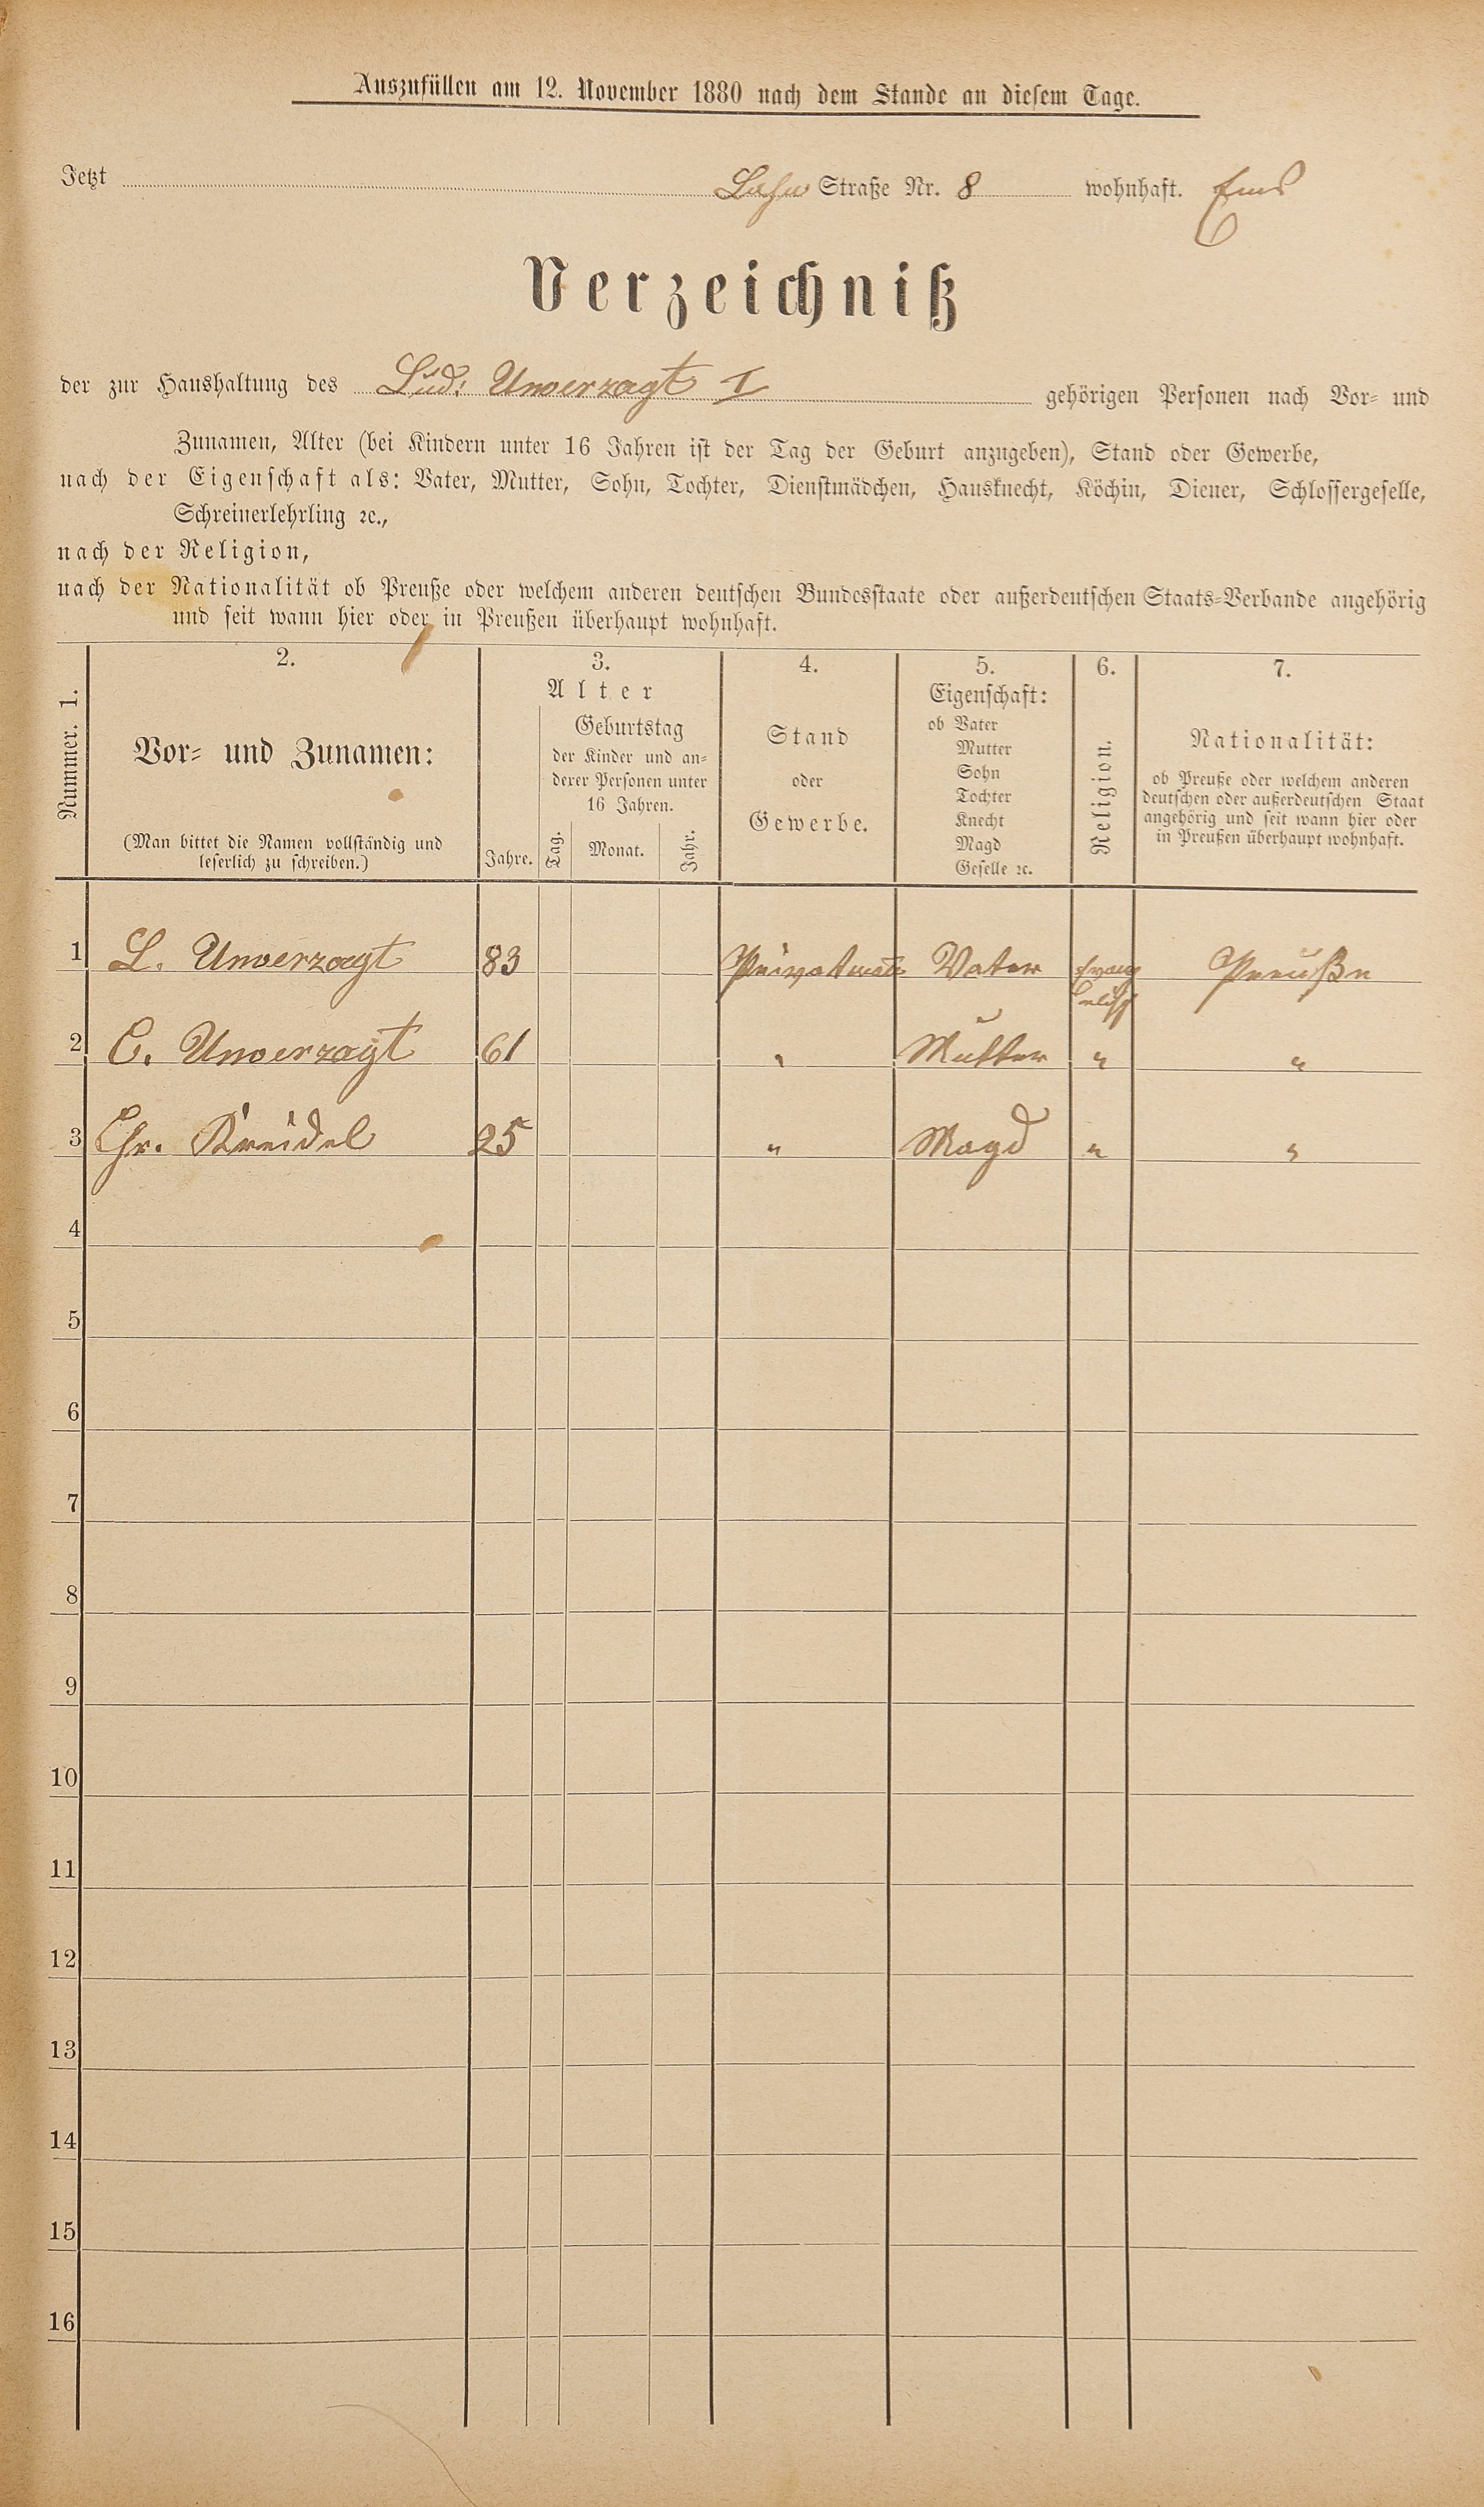 Auszufüllen am 12. November 1880 nach dem Stande an diesem Tage.
Jetzt Lahn Straße Nr. 8 wohnhaft. Ems
Verzeichniß
der zur Haushaltung des Lud. Unverzagt I gehörigen Personen nach Vor- und
Zunamen, Alter (bei Kindern unter 16 Jahren ist der Tag der Geburt anzugeben), Stand oder Gewerbe,
nach der Eigenschaft als: Vater, Mutter, Sohn, Tochter, Dienstmädchen, Hausknecht, Köchin, Diener, Schlossergeselle,
Schreinerlehrling ꝛc.,
nach der Religion,
nach der Nationalität ob Preuße oder welchem anderen deutschen Bundesstaate oder außerdeutschen Staats-Verbande angehörig
und seit wann hier oder in Preußen überhaupt wohnhaft.
Nummer. 1.
2.
Vor- und Zunamen:
(Man bittet die Namen vollständig und
leserlich zu schreiben.)
3.
Alter
Jahre.
Geburtstag
der Kinder und an-
derer Personen unter
16 Jahren.
Tag. Monat. Jahr.
4.
Stand
oder
Gewerbe.
5.
Eigenschaft:
ob Vater
Mutter
Sohn
Tochter
Knecht
Magd
Geselle ꝛc.
6.
Religion.
7.
Nationalität:
ob Preuße oder welchem anderen
deutschen oder außerdeutschen Staat
angehörig und seit wann hier oder
in Preußen überhaupt wohnhaft.
1 L. Unverzagt 83 Vater evang
elisch
2 C. Unverzagt 61 " Mutter " "
3 Chr. Kreidel 25 " Magd " "
4
5
6
7
8
9
10
11
12
13
14
15
16